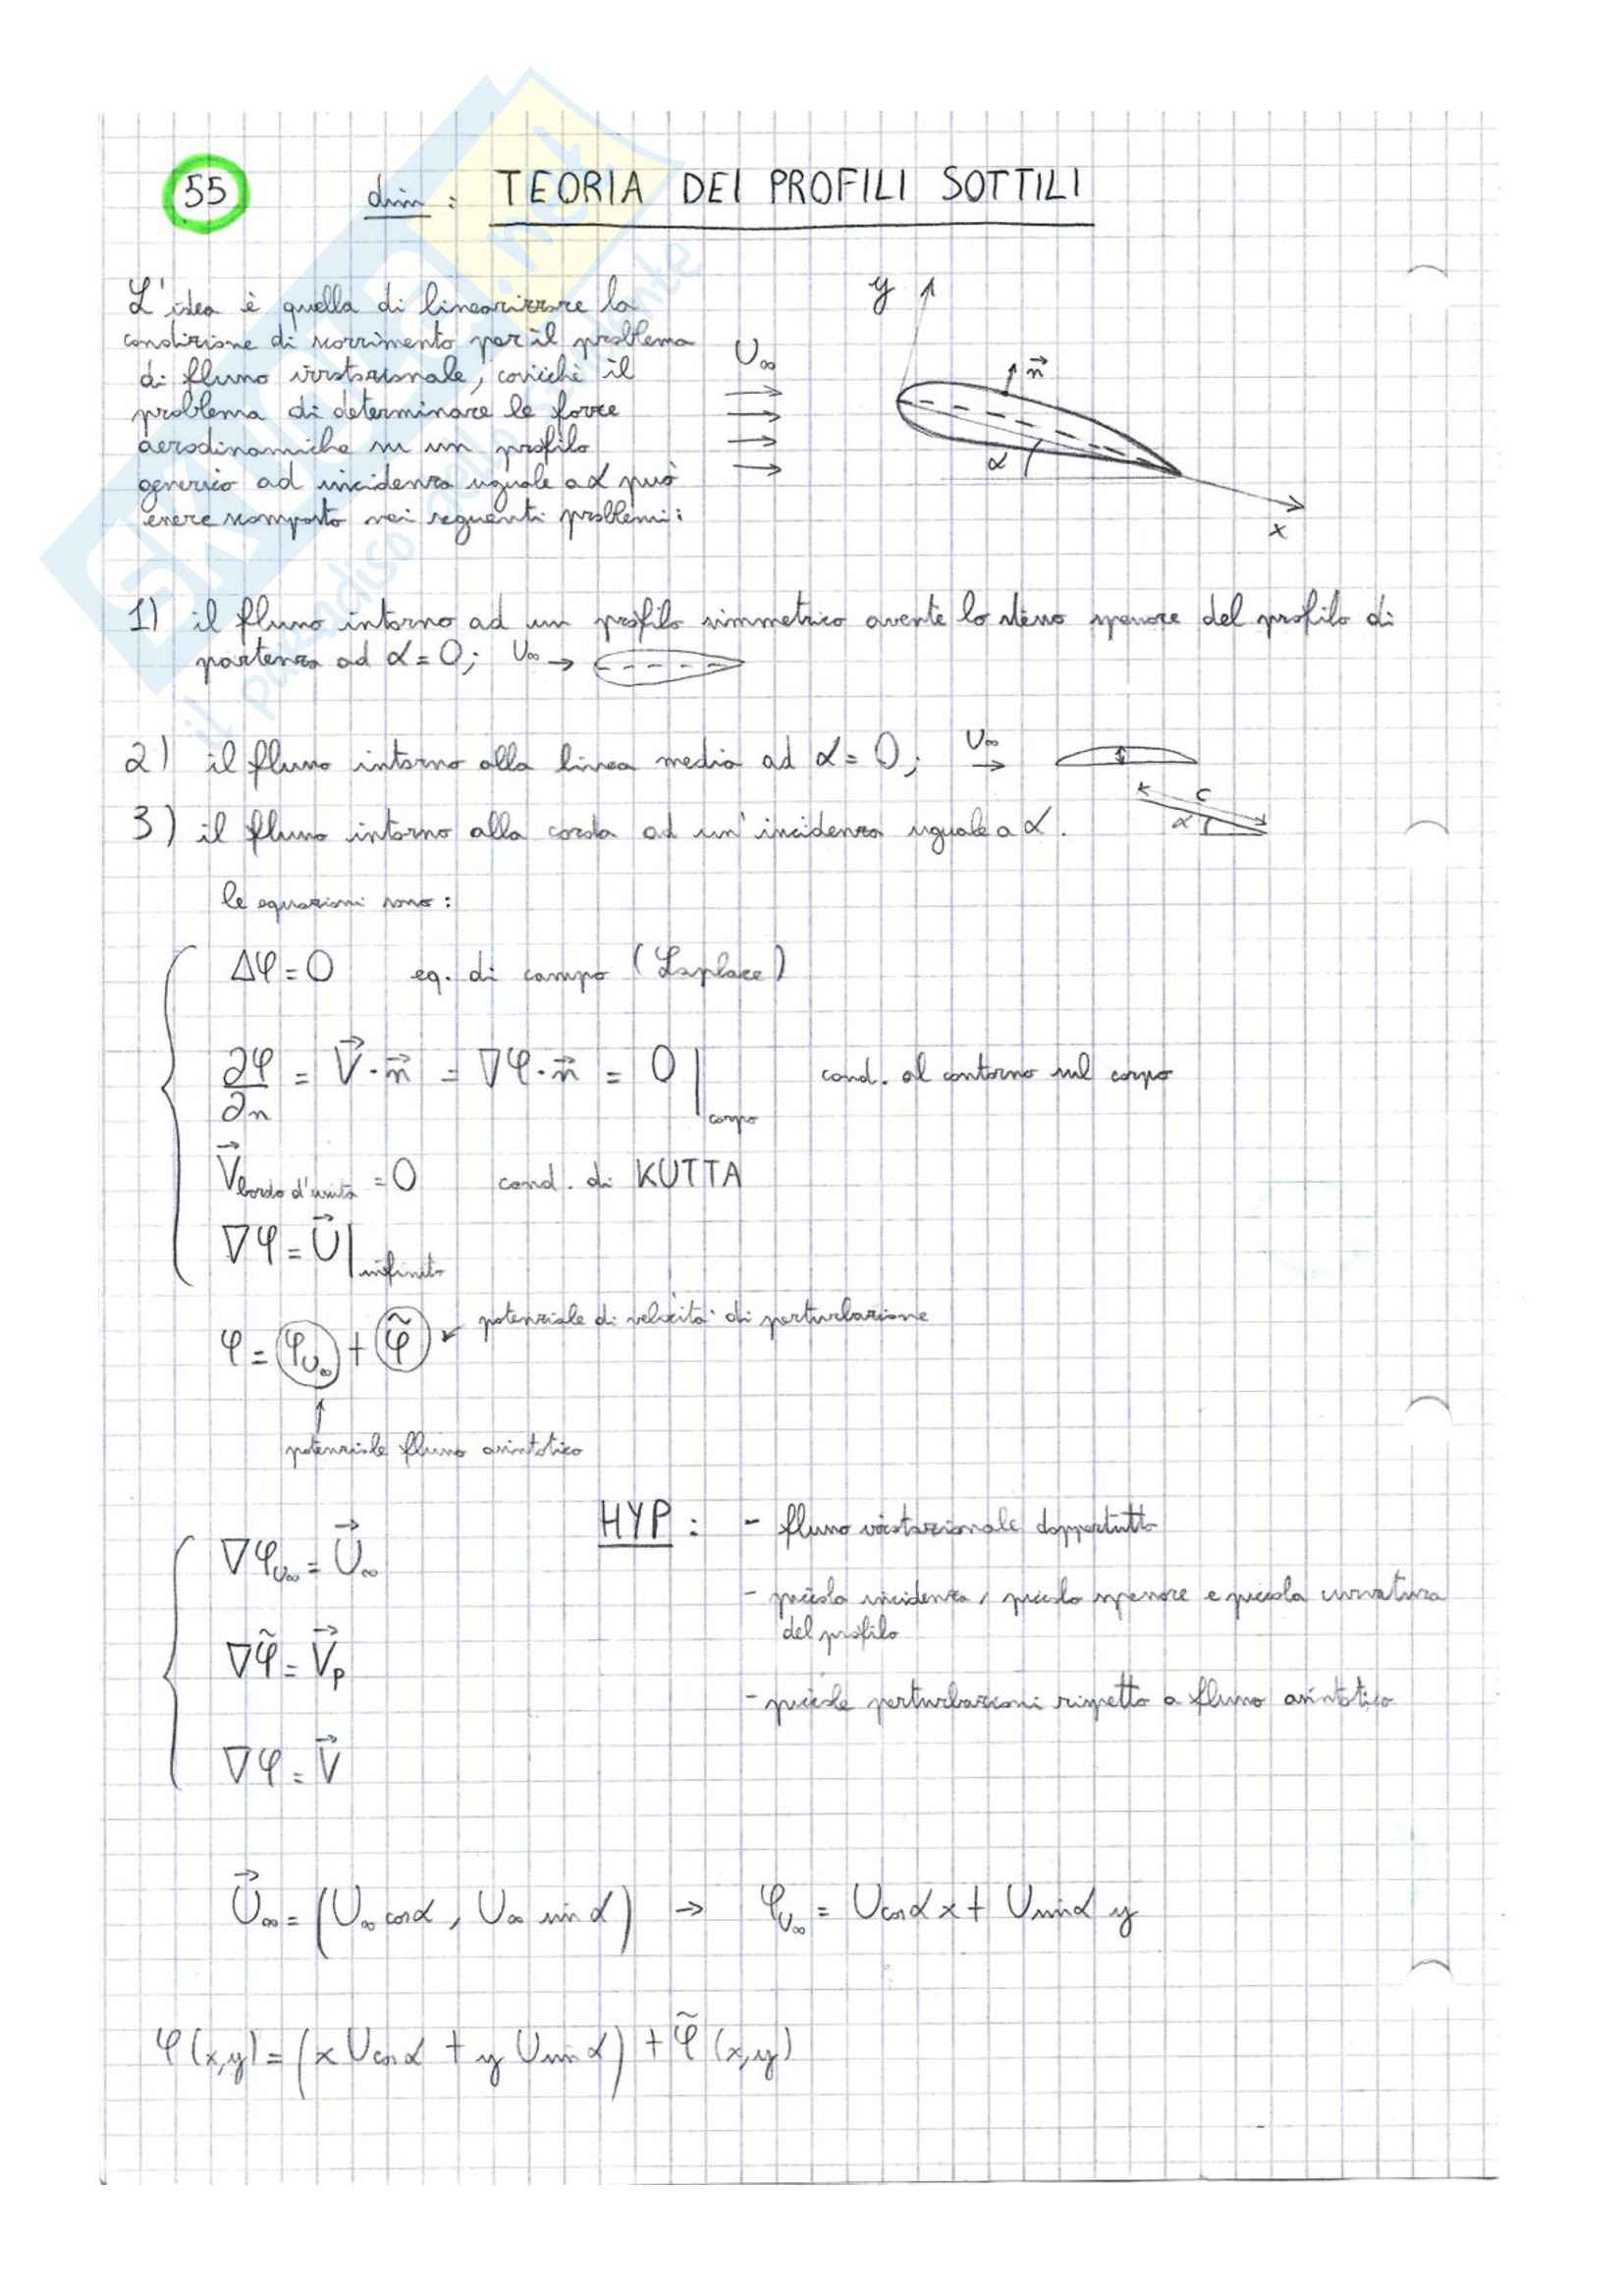 55 dim : TEORIA DEI PROFILI SOTTILI
L'idea è quella di linearizzare la
condizione di scorrimento per il problema
di flusso irrotazionale, cosicchè il
problema di determinare le forze
aerodinamiche su un profilo
generico ad incidenza uguale a α può
essere scomposto nei seguenti problemi:
y
U∞
n⃗
α
x
1) il flusso intorno ad un profilo simmetrico avente lo stesso spessore del profilo di
partenza ad α = 0; U∞ →
2) il flusso intorno alla linea media ad α = 0; U∞ →
3) il flusso intorno alla corda ad un'incidenza uguale a α.
c
α
le equazioni sono:
Δφ = 0 eq. di campo (Laplace)
∂φ/∂n = V⃗ · n⃗ = ∇φ · n⃗ = 0 | corpo cond. al contorno sul corpo
V⃗ bordo d'uscita = 0 cond. di KUTTA
∇φ = U⃗ | infinito
φ = φU∞ + φ̃ ↙ potenziale di velocità di perturbazione
↑
potenziale flusso asintotico
HYP : - flusso irrotazionale dappertutto
- piccola incidenza, piccolo spessore e piccola curvatura
del profilo
- piccole perturbazioni rispetto a flusso asintotico
∇φU∞ = U⃗∞
∇φ̃ = V⃗p
∇φ = V⃗
U⃗∞ = (U∞ cosα , U∞ sinα) → φU∞ = U cosα x + U sinα y
φ(x,y) = (x U cosα + y U sinα) + φ̃ (x,y)
SKUOLA.net
il paradiso dello studente